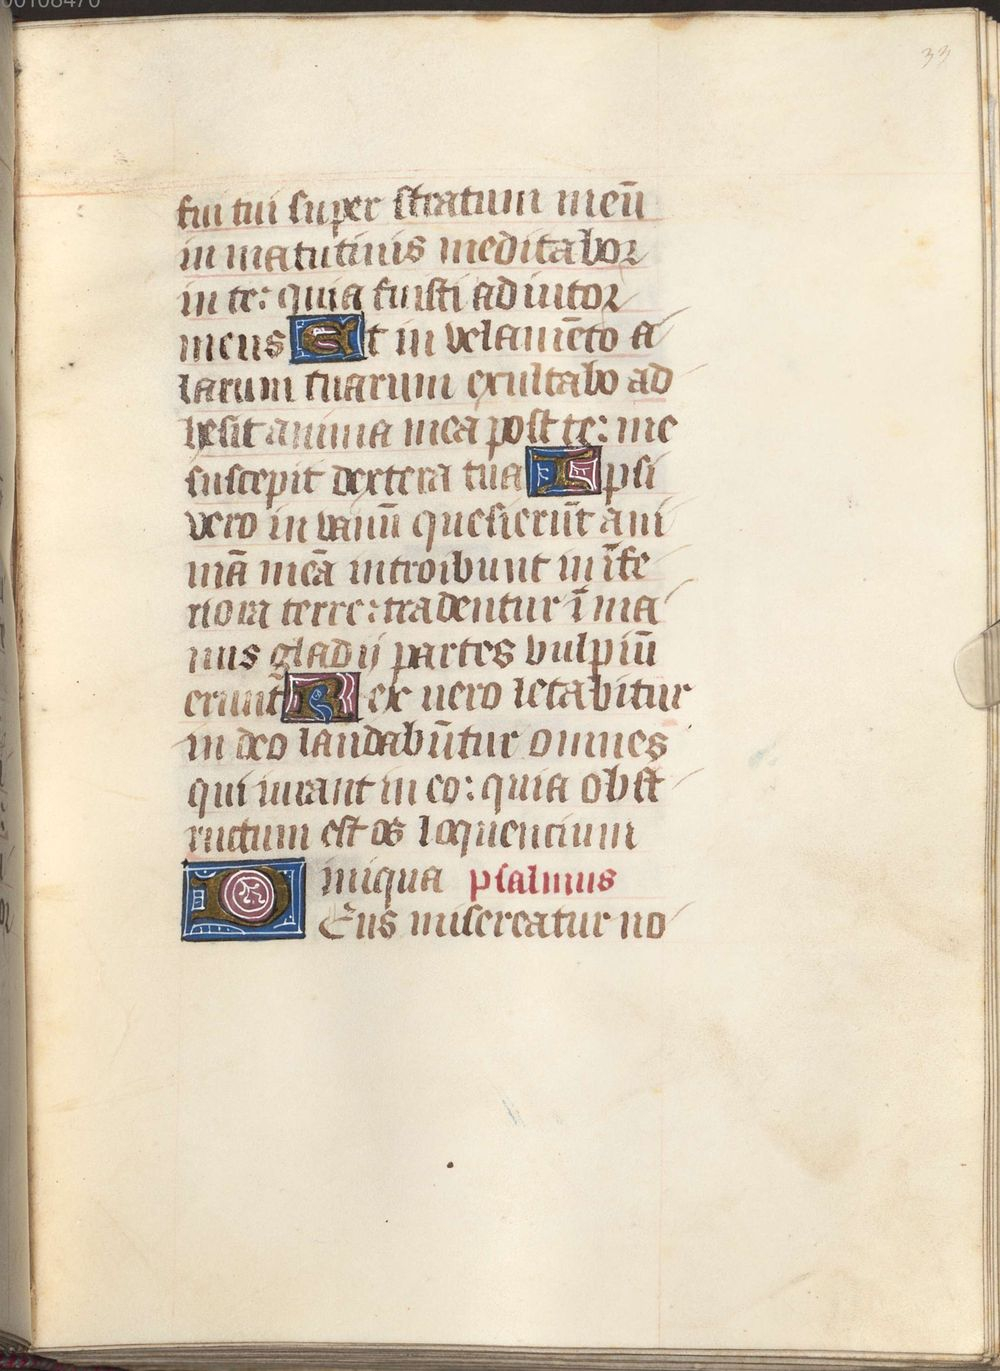 00108470
33
fui tui super stratum meū
in matutinis meditabor
in te: quia fuisti adiutor
meus Et in velamēto a
larum tuarum exultabo ad
hesit anima mea post te: me
suscepit dextera tua Ipsi
vero in vanū quesierūt ani
mā meā introibunt in īfe
riora terre: tradentur ī ma
nus gladij partes vulpiū
erunt Rex vero letabitur
in deo laudabūtur omnes
qui iurant in eo: quia obst
ructum est os loquencium
iniqua psalmus
DEus misereatur no